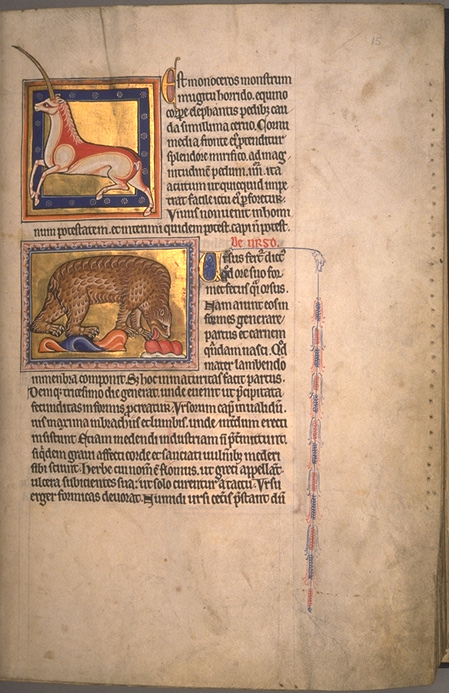 15
Est monoceros monstrum
mugitu horrido. equino
corpe elephantis pedib; cau
da simillima ceruo. Cornu
media fronte eius protenditur
splendore mirifico. ad mag
nitudinem pedum .iiii. ita
acutum ut quicquid impe
tat facile ictu ei' pforetur.
Viuus non uenit in homi
num potestatem. et interimi quidem potest. capi n potest.
De urso.
Vrsus fert' dict'
qd ore suo for
met fetus qi orsus.
Nam aiunt eos in
formes generare
partus et carnem
quidam nasci. Qd
mater lambendo
in membra componit. S; hoc inmaturitas facit partus.
Denique tricesimo die generat. unde euenit ut pcipitata
fecunditas informis pcreatur. Vrsorum cap inualidu.
uis maxima in brachiis et lumbis. unde int'dum erecti
insistunt. Etiam medendi industriam n pmittunt.
siqdem graui affecti corde et sauciati uulnib; mederi
sibi sciunt. Herbe cui nom e flomus. ut greci appellant
ulcera subicientes sua. ut solo curent'a tactu. Vrsus
eger formicas deuorat. Numidi ursi ceteris pstant du